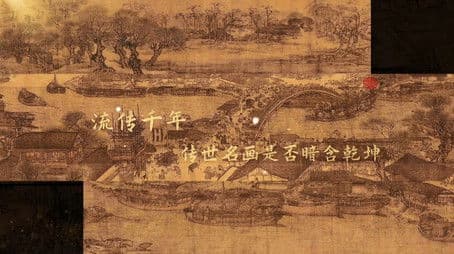 流传千年
传世名画是否暗含乾坤